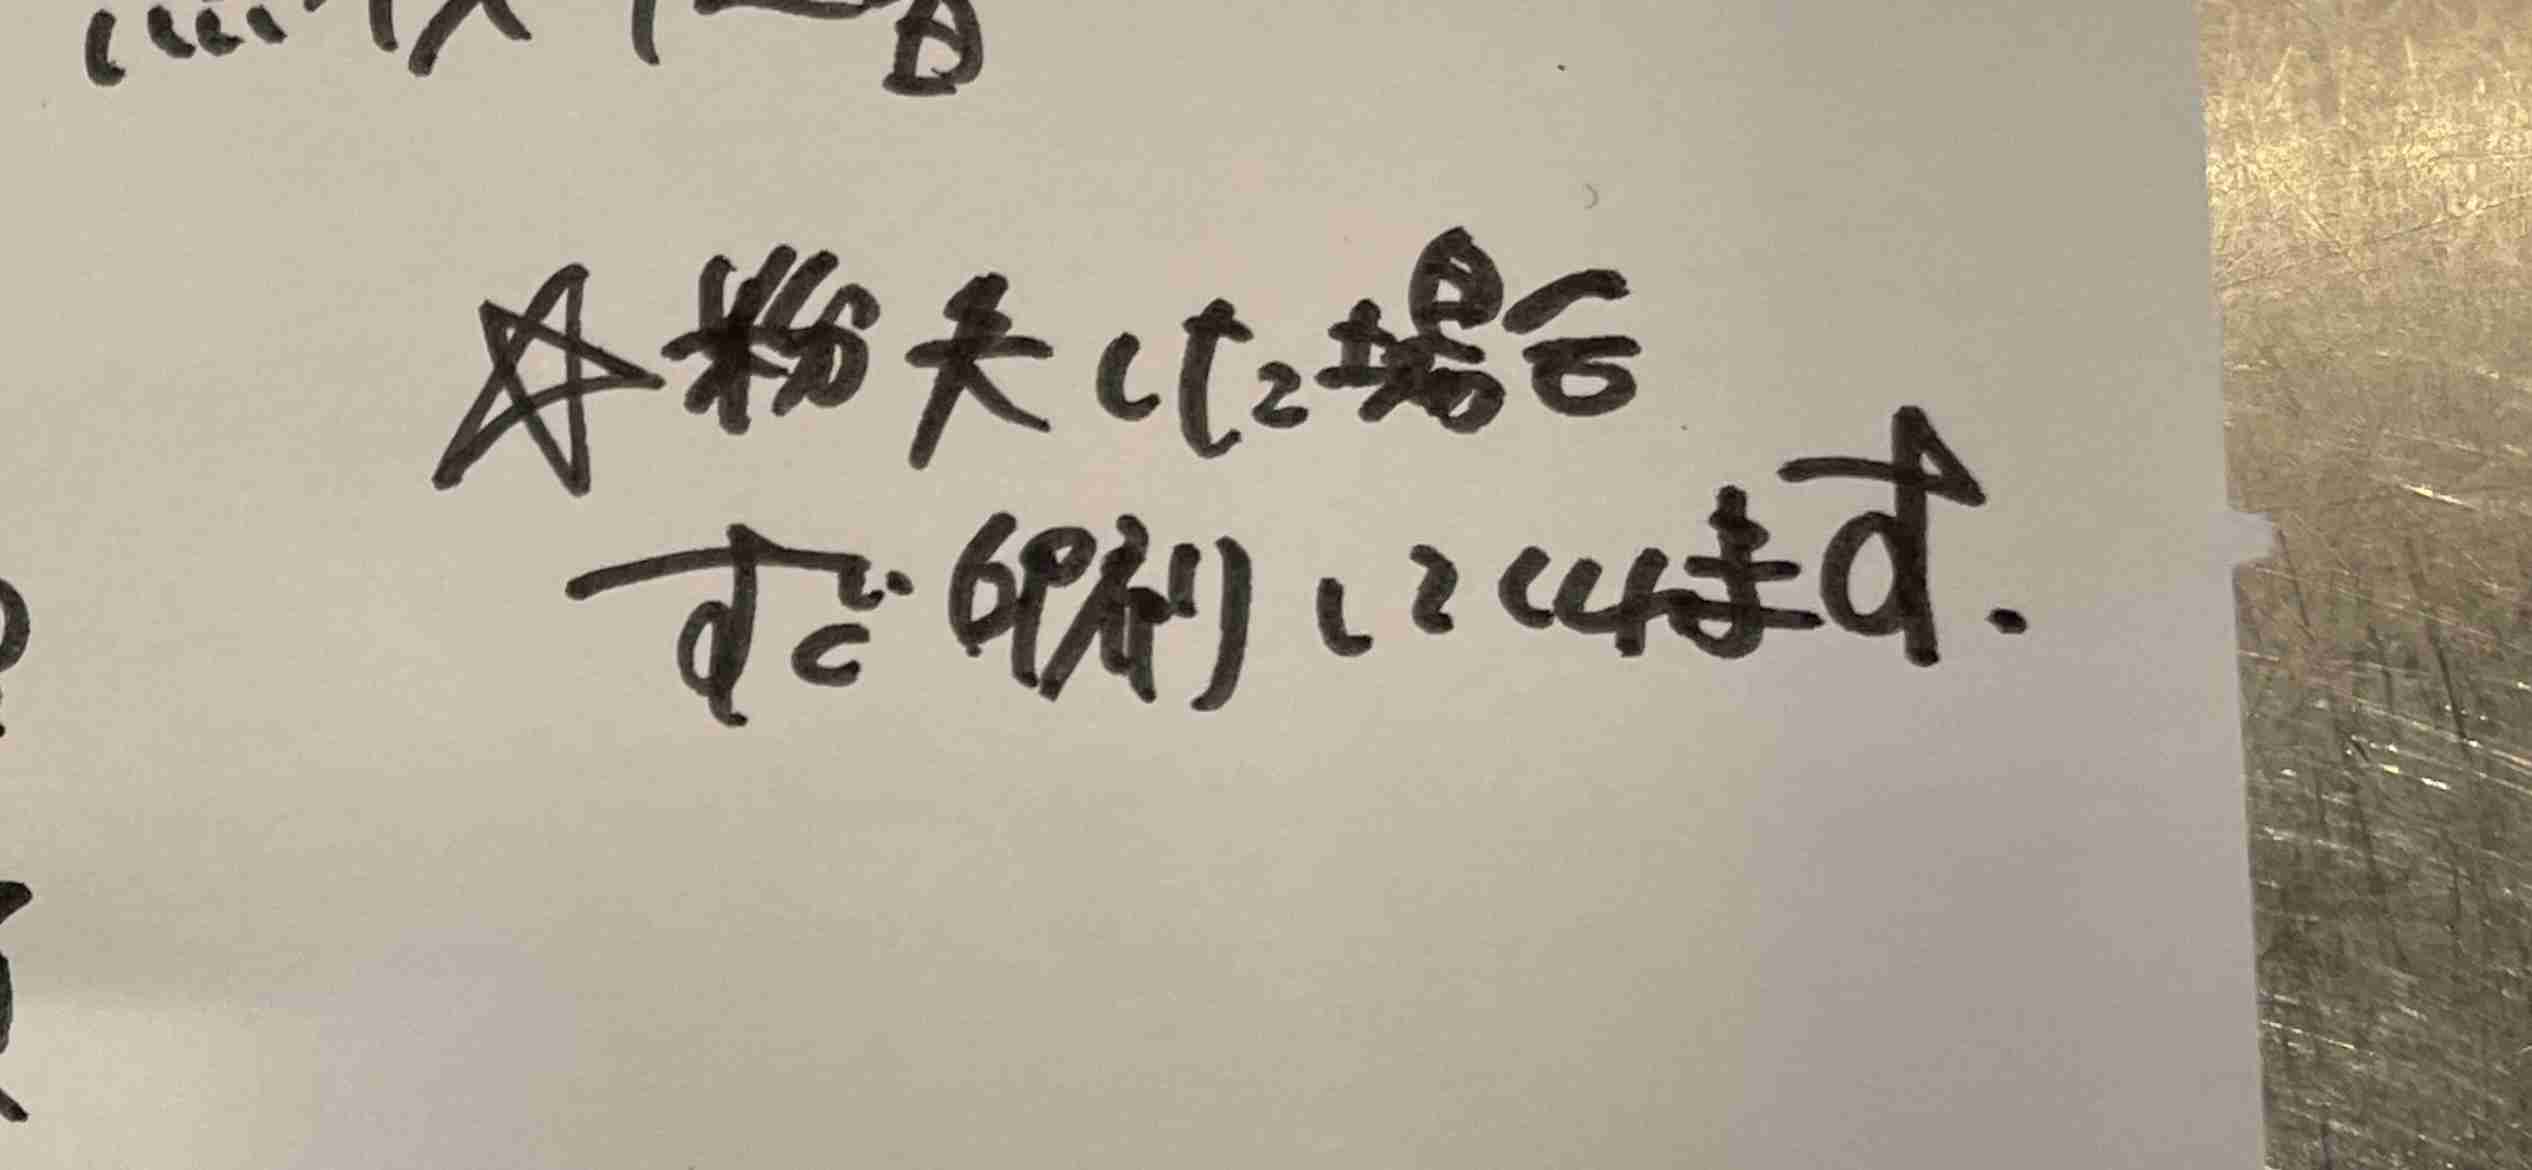 ☆粉失した場合
すぐ印刷してくれます.